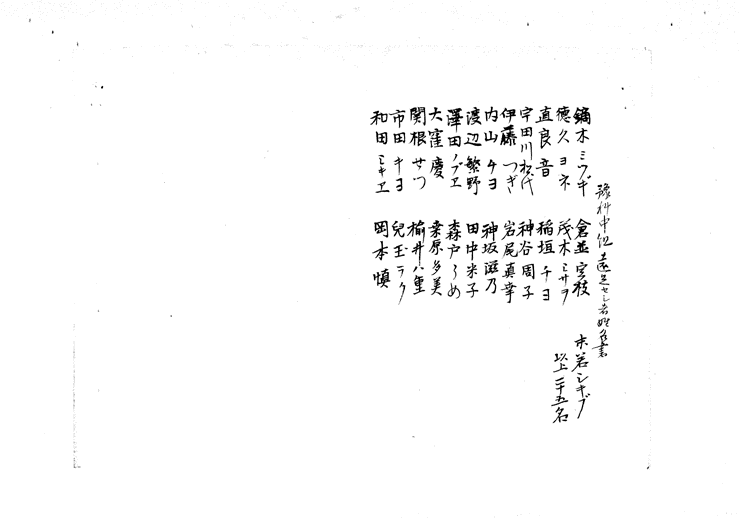 豫科中組遠足セシ者姓名書
鏑木ミツギ 倉並宝枝 末若シキブ
徳久ヨネ 茂木ミサヲ 以上二十五名
直良音 稲垣チヨ
宇田川松代 神谷周子
伊藤つぎ 岩尾真幸
内山チヨ 神坂滋乃
渡辺繁野 田中米子
澤田ノブヱ 森戸らめ
大窪慶 桑原多美
関根せつ 楡井八重
市田キヨ 兒玉ラク
和田ミキヱ 岡本慎